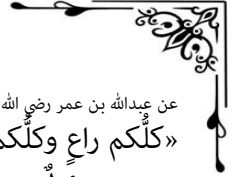 عن عبدالله بن عمر رضي الله
«كلُّكم راعٍ وكلُّكم